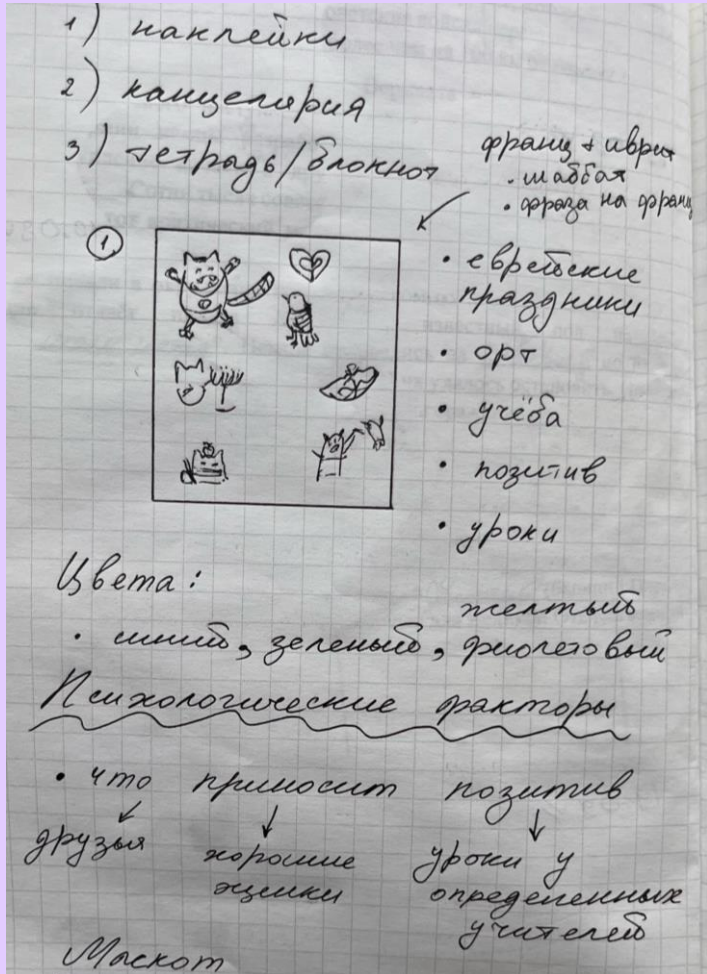 1) наклейки
2) канцелярия
3) тетрадь/блокнот
франц + иврит
• шаббат
• фраза на франц
1
• еврейские
праздники
• орт
• учёба
• позитив
• уроки
Цвета:
желтый
• синий, зеленый, фиолетовый
Психологические факторы
• что приносит позитив
друзья
хорошие
оценки
уроки у
определенных
учителей
Маскот